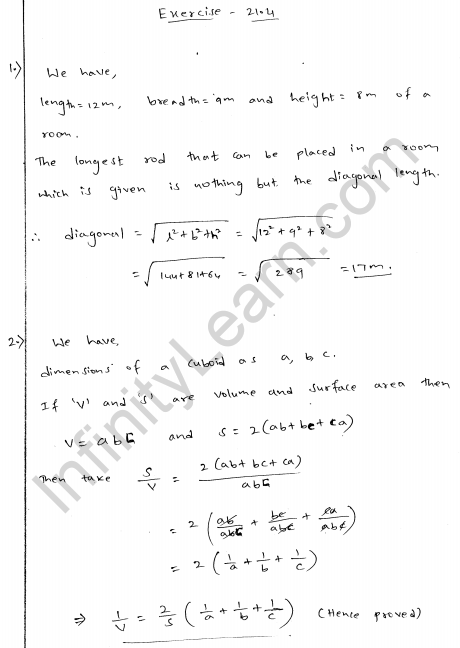 Exercise - 21.4
1.) We have,
length = 12m, breadth = 9m and height = 8m of a
room.
The longest rod that can be placed in a room
which is given is nothing but the diagonal length.
∴ diagonal = √(l² + b² + h²) = √(12² + 9² + 8²)
= √(144 + 81 + 64) = √289 = 17m.
2.) We have,
dimensions of a cuboid as a, b, c.
If 'V' and 'S' are volume and surface area then
V = abc and S = 2(ab + bc + ca)
Then take S/V = 2(ab + bc + ca)/abc
= 2(ab/abc + bc/abc + ca/abc)
= 2(1/a + 1/b + 1/c)
⇒ 1/V = 2/S (1/a + 1/b + 1/c) (Hence proved)
InfinityLearn.com